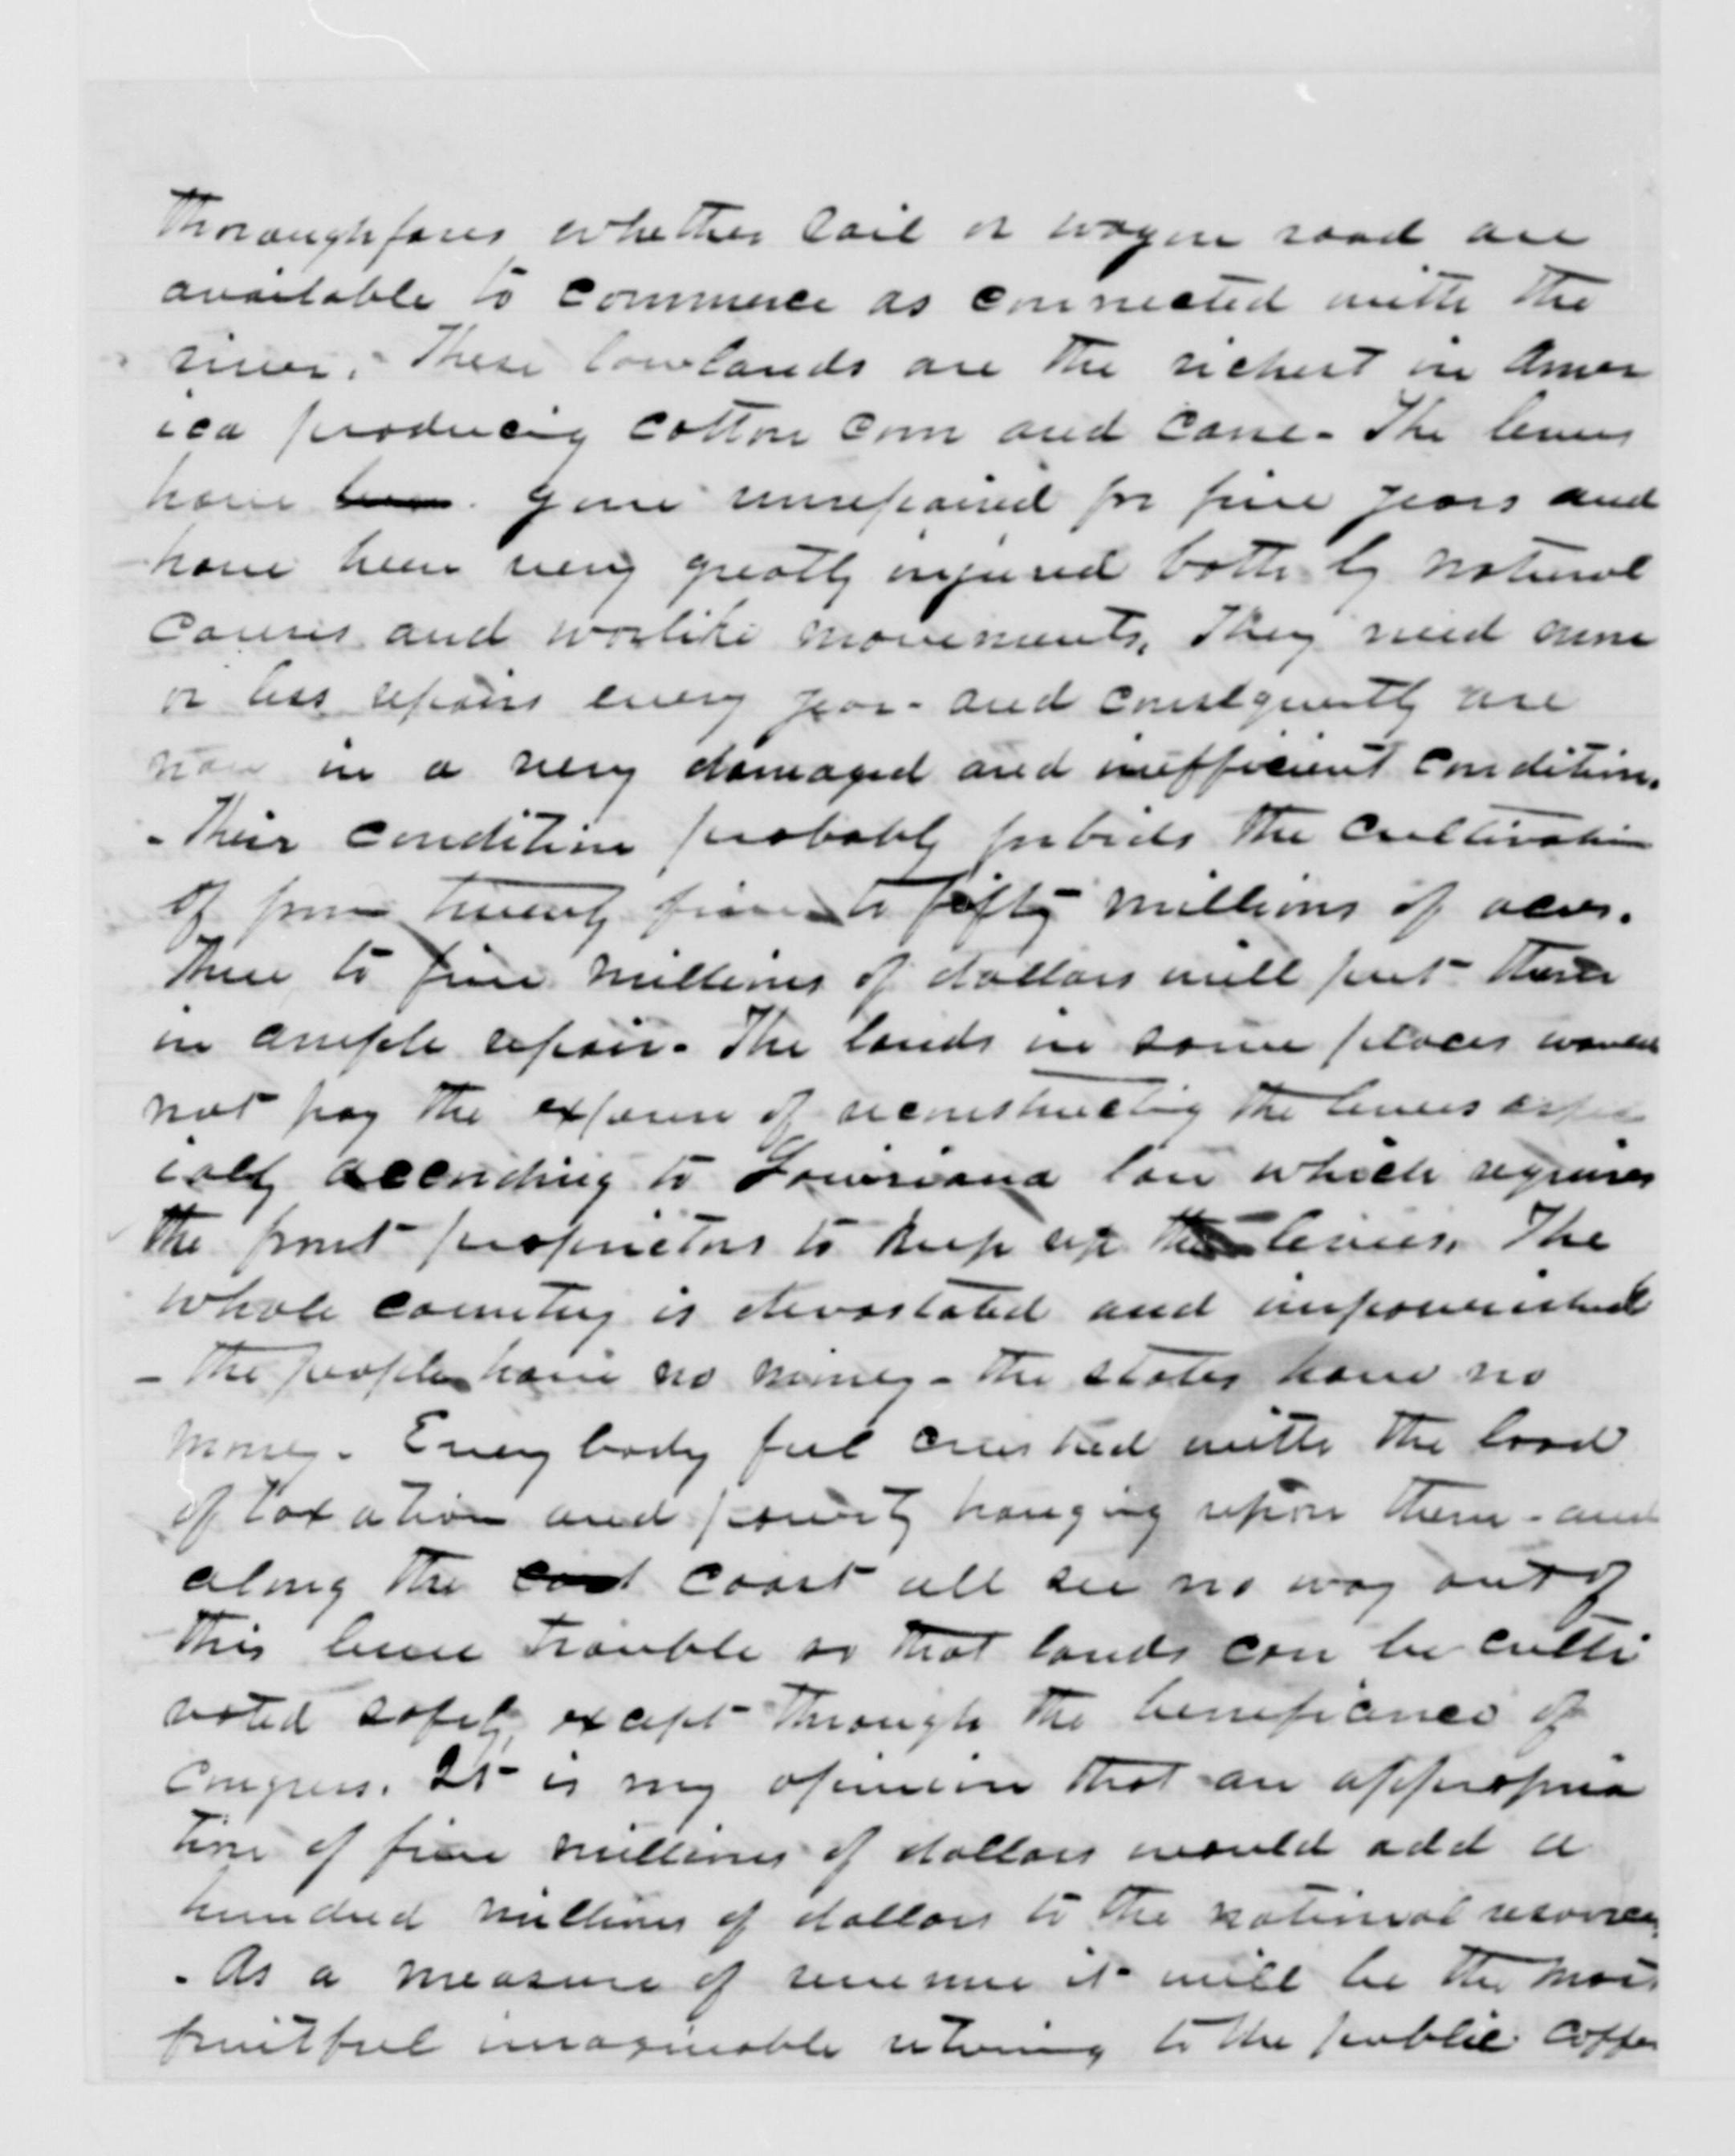 Thoroughfares whether rail or wagon road are
available to commerce as connected with the
river. - These lowlands are the richest in Amer
ica producing cotton corn and cane - The levees
have been gone unrepaired for five years and
have been very greatly injured both by natural
causes and warlike movements. They need more
or less repairs every year - and consequently are
now in a very damaged and inefficient condition.
- Their condition probably forbids the cultivation
of from twenty five to fifty millions of acres.
Three to five millions of dollars will put them
in ample repair - The lands in some places would
not pay the expense of reconstructing the levees espec
ially according to Louisiana law which requires
the front proprietors to keep up the levees. The
whole country is devastated and impoverished
- The people have no money - the states have no
money - Every body feel crushed with the load
of taxation and poverty hanging upon them - and
along the coast coast all see no way out of
this levee trouble so that lands can be culti
vated safely, except through the beneficence of
Congress. It is my opinion that an appropria
tion of five millions of dollars would add a
hundred millions of dollars to the national resources
- As a measure of revenue it will be the most
fruitful imaginable returning to the public coffers